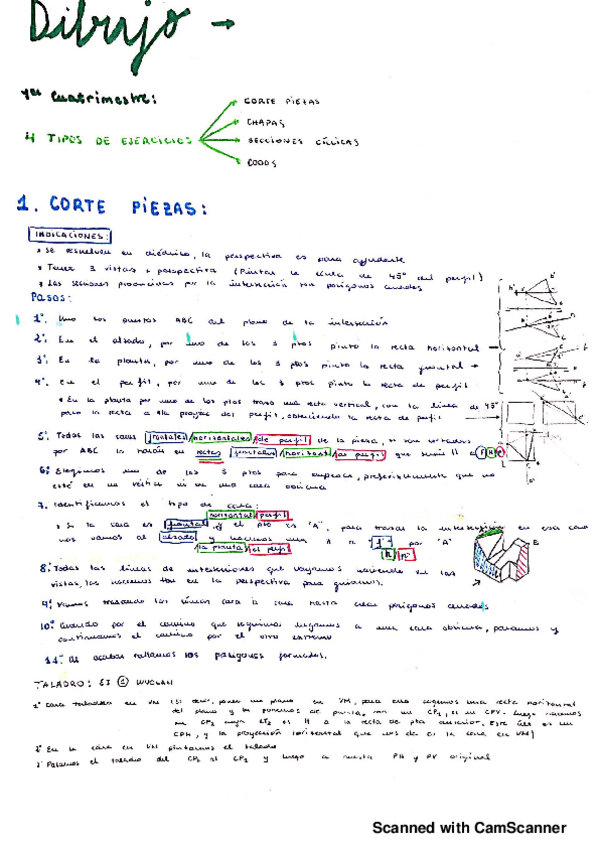 Dibujo →
1er Cuatrimestre:
CORTE PIEZAS
CHAPAS
4 TIPOS DE EJERCICIOS
SECCIONES CÍCLICAS
CODOS
1. CORTE PIEZAS:
INDICACIONES:
• Se resuelven en diédrico, la perspectiva es para ayudarte
• Tener 3 vistas + perspectiva (Pintar la línea de 45° del perfil)
• Las secciones producidas por la intersección son polígonos cerrados
Pasos:
1º. Uno los puntos ABC del plano de la intersección
2º. En el alzado, por uno de los 3 ptos pinto la recta horizontal →
3º. En la planta, por uno de los 3 ptos pinto la recta frontal →
4º. en el perfil, por uno de los 3 ptos pinto la recta de perfil
• En la planta por uno de los ptos trazo una recta vertical, con la línea de 45°
paso la recta a la proyec del perfil, obteniendo la recta de perfil
5º. Todas las caras frontales/horizontales/de perfil de la pieza, si son cortadas
por ABC lo harán en rectas frontales/horizont/de perfil que serán ll a F H P
6º. Elegimos uno de los 3 ptos para empezar, preferiblemente que no
esté en un vértice ni en una cara oblicua
7. Identificamos el tipo de cara:
horizontal perfil
• Si la cara es frontal y el pto es "A", para trazar la intersección en esa cara
nos vamos al alzado y hacemos una ll a "f" por "A"
la planta el perfil h p
B
8º. Todas las líneas de intersecciones que vayamos haciendo en las
vistas, las hacemos tb en la perspectiva para guiarnos.
9º. Vamos trazando las líneas cara a cara hasta crear polígonos cerrados
10º. Cuando por el camino que seguimos llegamos a una cara oblicua, paramos y
continuamos el camino por el otro extremo
11º. De acabar rallamos los polígonos formados.
TALADRO: EJ 1 WUOLAH
1º cara taladro en VM (Es decir, poner un plano en VM, para ello cogemos una recta horizontal
del plano y la ponemos de punta, con un CP1, es un CPV. Luego hacemos
un CP2 cuya LT2 es ll a la recta de pta anterior, Este últ es un
CPH, y la proyección horizontal que nos da es la cara en VM)
2º En la cara en VM pintamos el taladro
3º Pasamos el taladro del CP2 al CP1 y luego a nuestra PH y PV original
Scanned with CamScanner